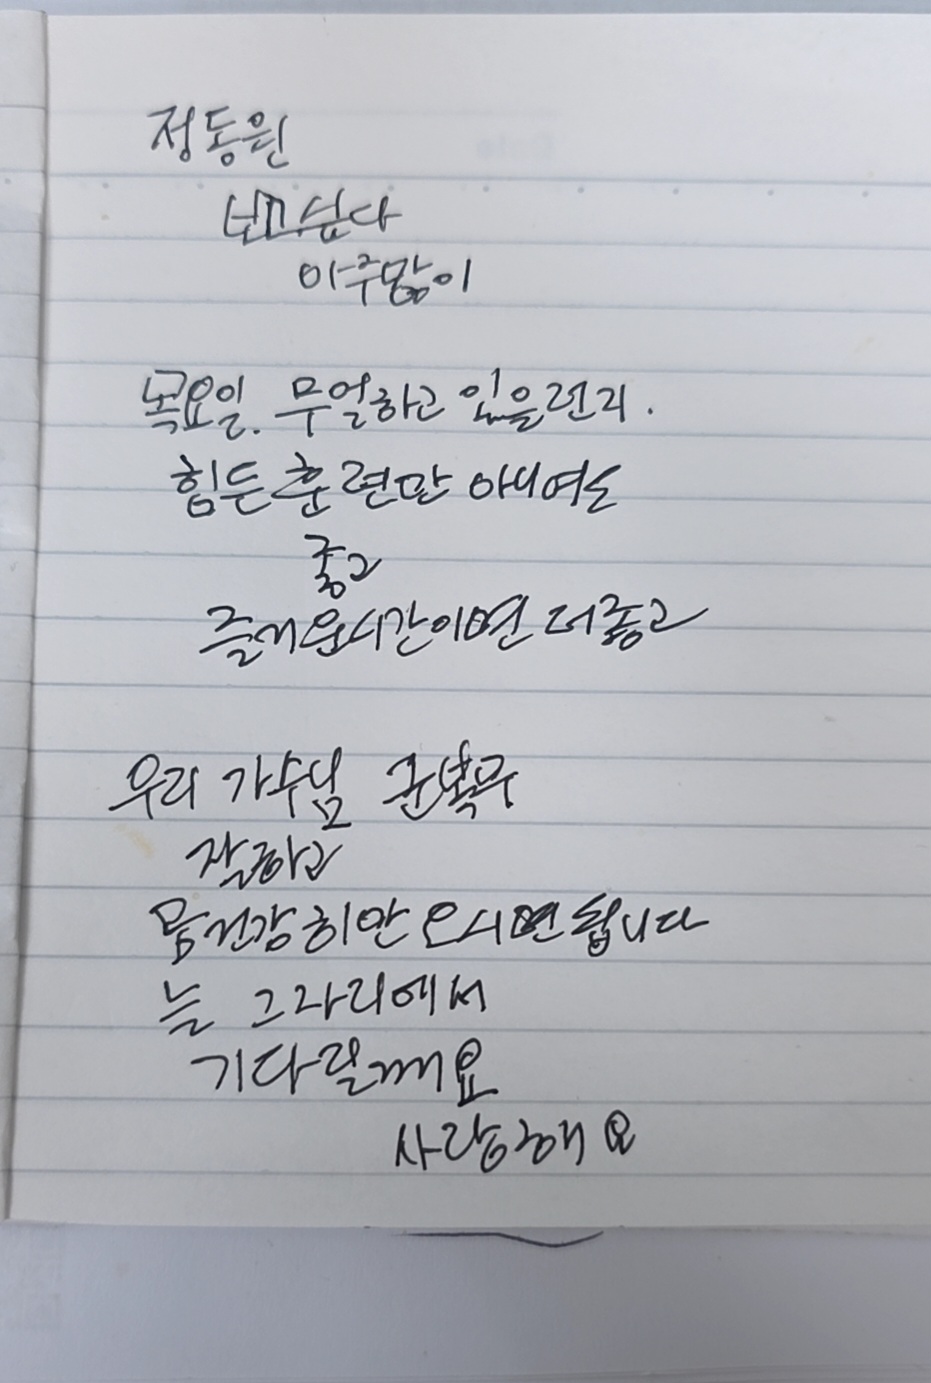 정동원
보고싶다
아주많이
목요일. 무얼하고 있을런지.
힘든 훈련만 아니여도
좋고
즐거운시간이면 더좋고
우리 가수님 군복무
잘하고
몸건강히만 오시면 됩니다
늘 그자리에서
기다릴께요
사랑해요